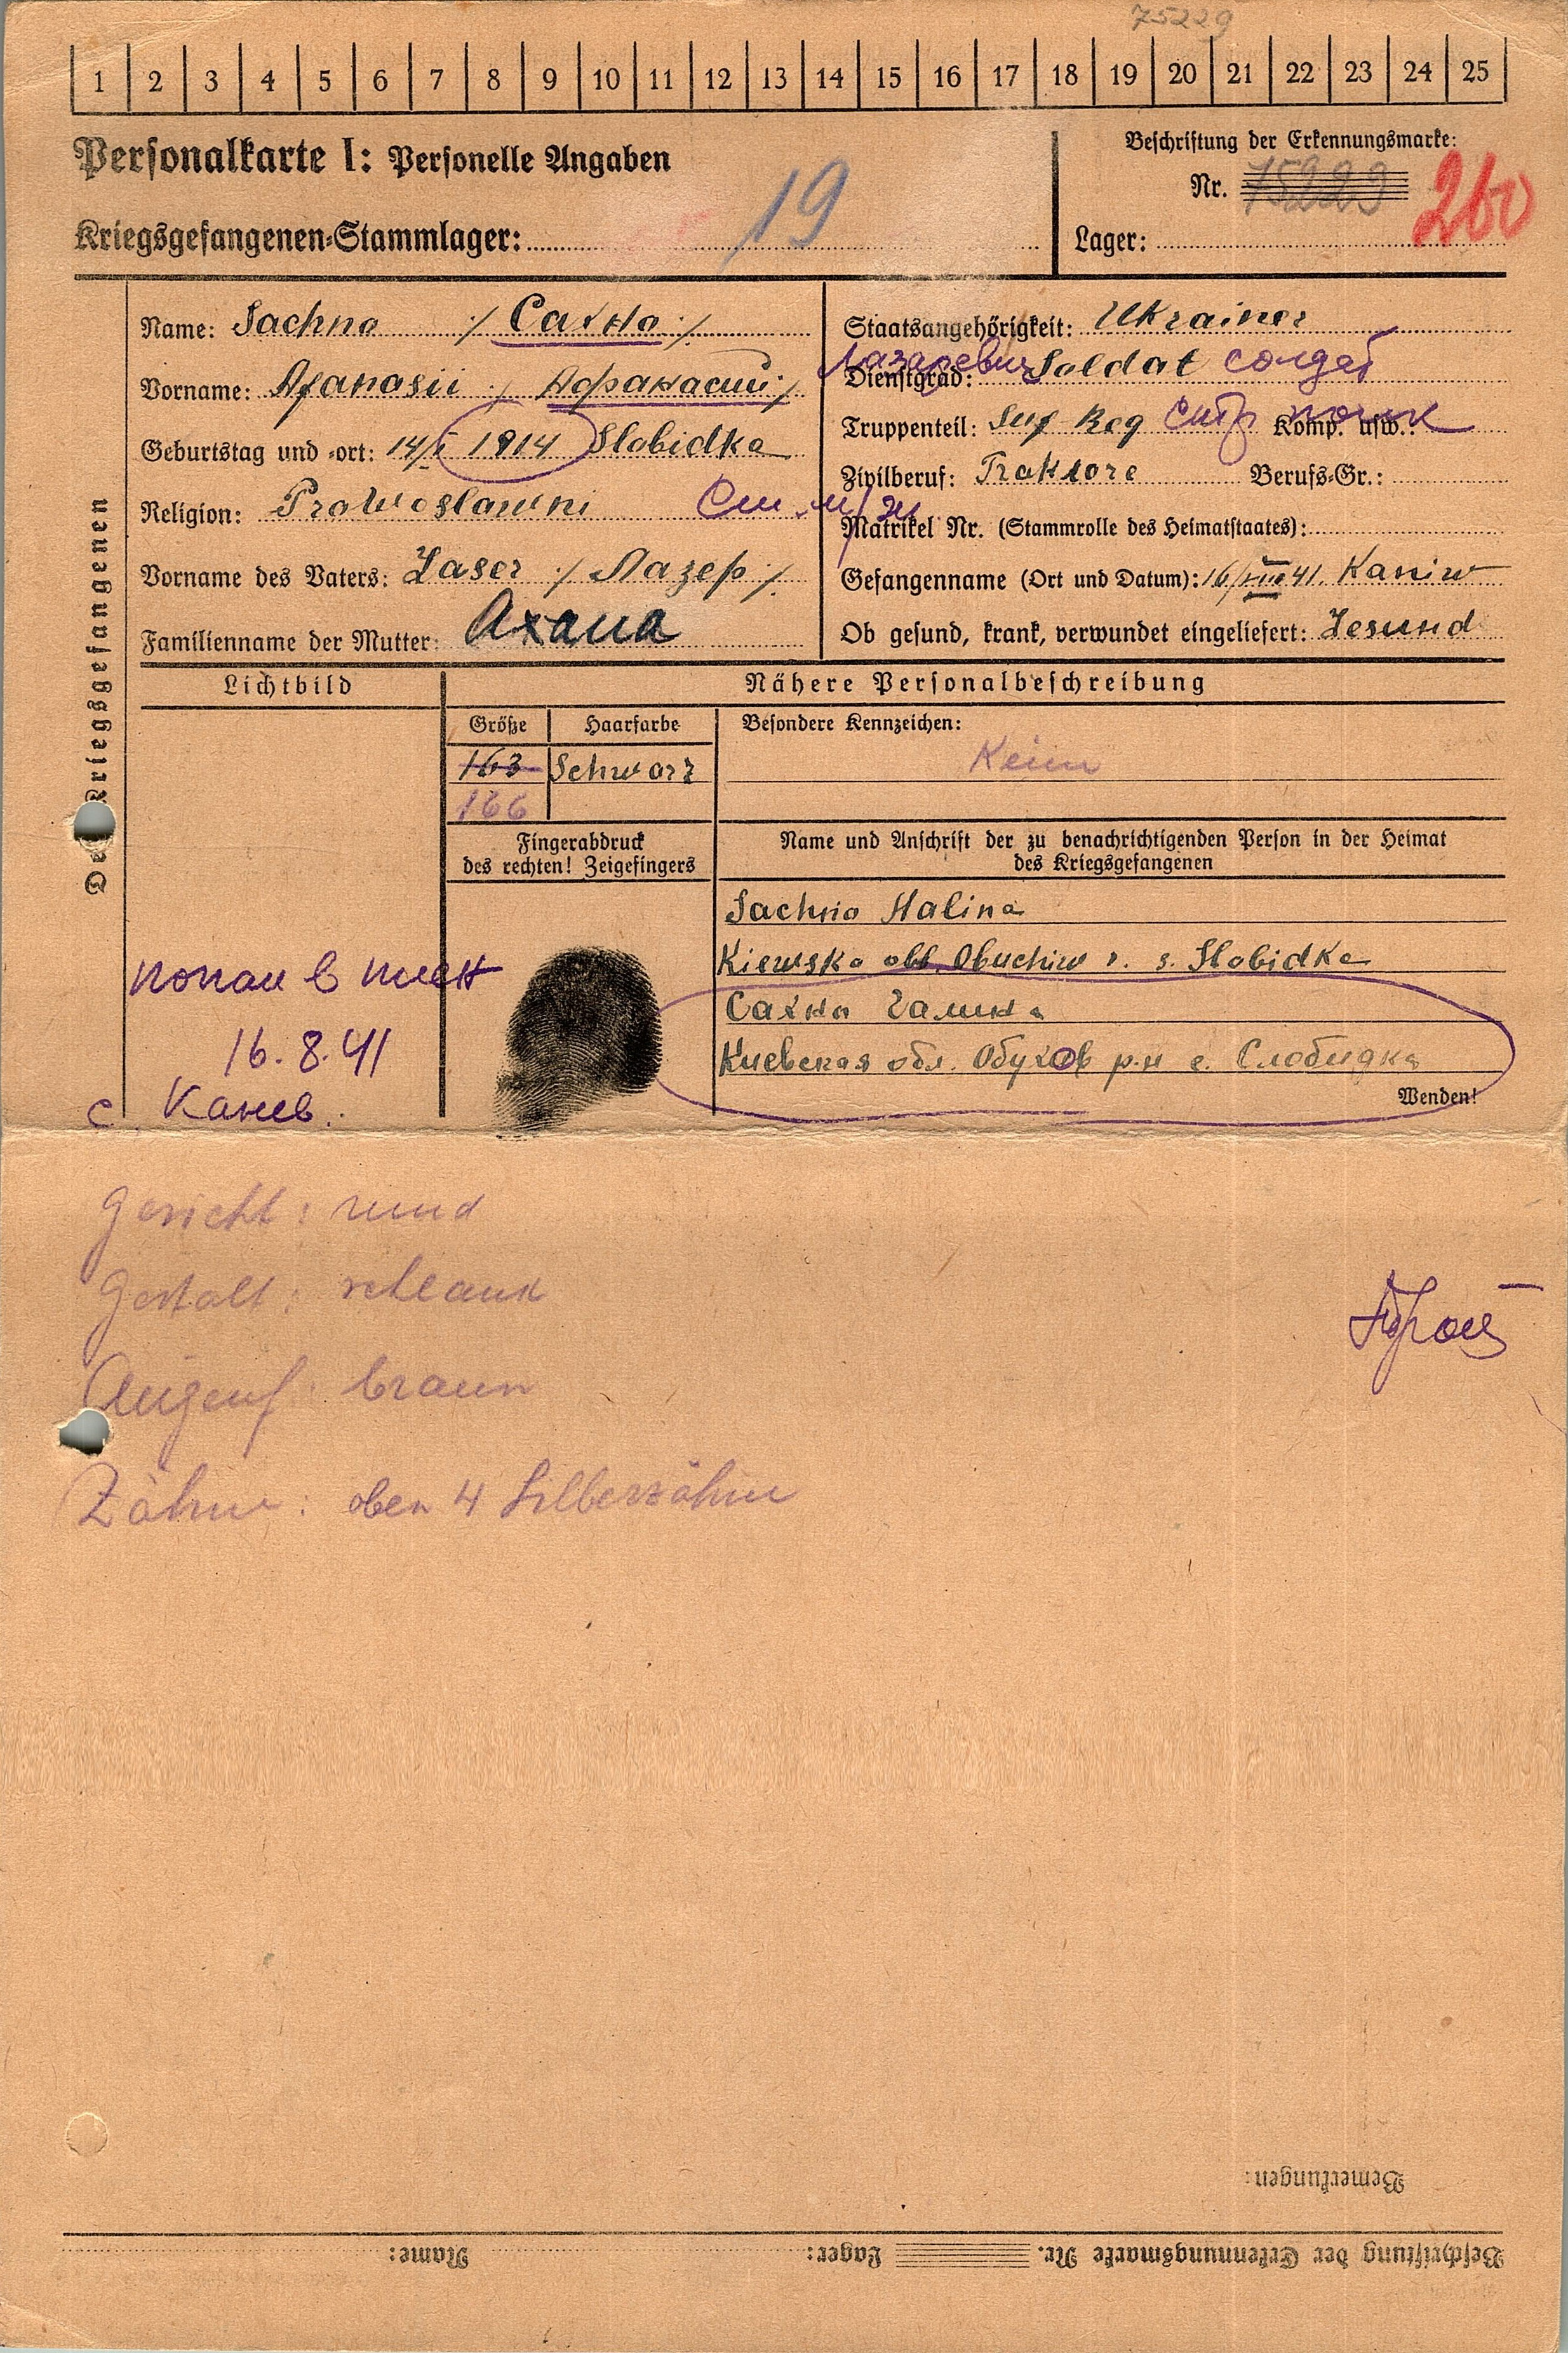 75229
1 2 3 4 5 6 7 8 9 10 11 12 13 14 15 16 17 18 19 20 21 22 23 24 25
Personalkarte I: Personelle Angaben
Kriegsgefangenen-Stammlager: 19
Beschriftung der Erkennungsmarke:
Nr. 75229 260
Lager:
Des Kriegsgefangenen
Name: Sachno ./. Сахно ./.
Vorname: Afanasii ./. Афанасий ./.
Geburtstag und -ort: 14/I 1914 Slobidka
Religion: Prawoslawni
Vorname des Vaters: Laser ./. Лазер ./.
Familienname der Mutter: Axana
Staatsangehörigkeit: Ukrainer
Лазаревич
Dienstgrad: Soldat солдат
Truppenteil: Inf Reg стр полк Komp. usw.:
Zivilberuf: Traktore Berufs-Gr.:
Matrikel Nr. (Stammrolle des Heimatstaates):
Gefangenname (Ort und Datum): 16/VIII 41. Kaniw
Ob gesund, krank, verwundet eingeliefert: Jesund
Lichtbild
Nähere Personalbeschreibung
Größe Haarfarbe Besondere Kennzeichen:
163 Schwarz Keine
166
Fingerabdruck
des rechten! Zeigefingers
Name und Anschrift der zu benachrichtigenden Person in der Heimat
des Kriegsgefangenen
Sachno Halina
Kiewska obl. Obuchiw r. s. Slobidka
Сахно Галина
Киевская обл. Обухов р-н с. Слобидка
Wenden!
попал в плен
16.8.41
с. Канев.
Gesicht: rund
Gestalt: schlank
Augenf: braun
Zähne: oben 4 Silberzähne
Bemerkungen:
Beschriftung der Erkennungsmarke Nr. Lager: Name: